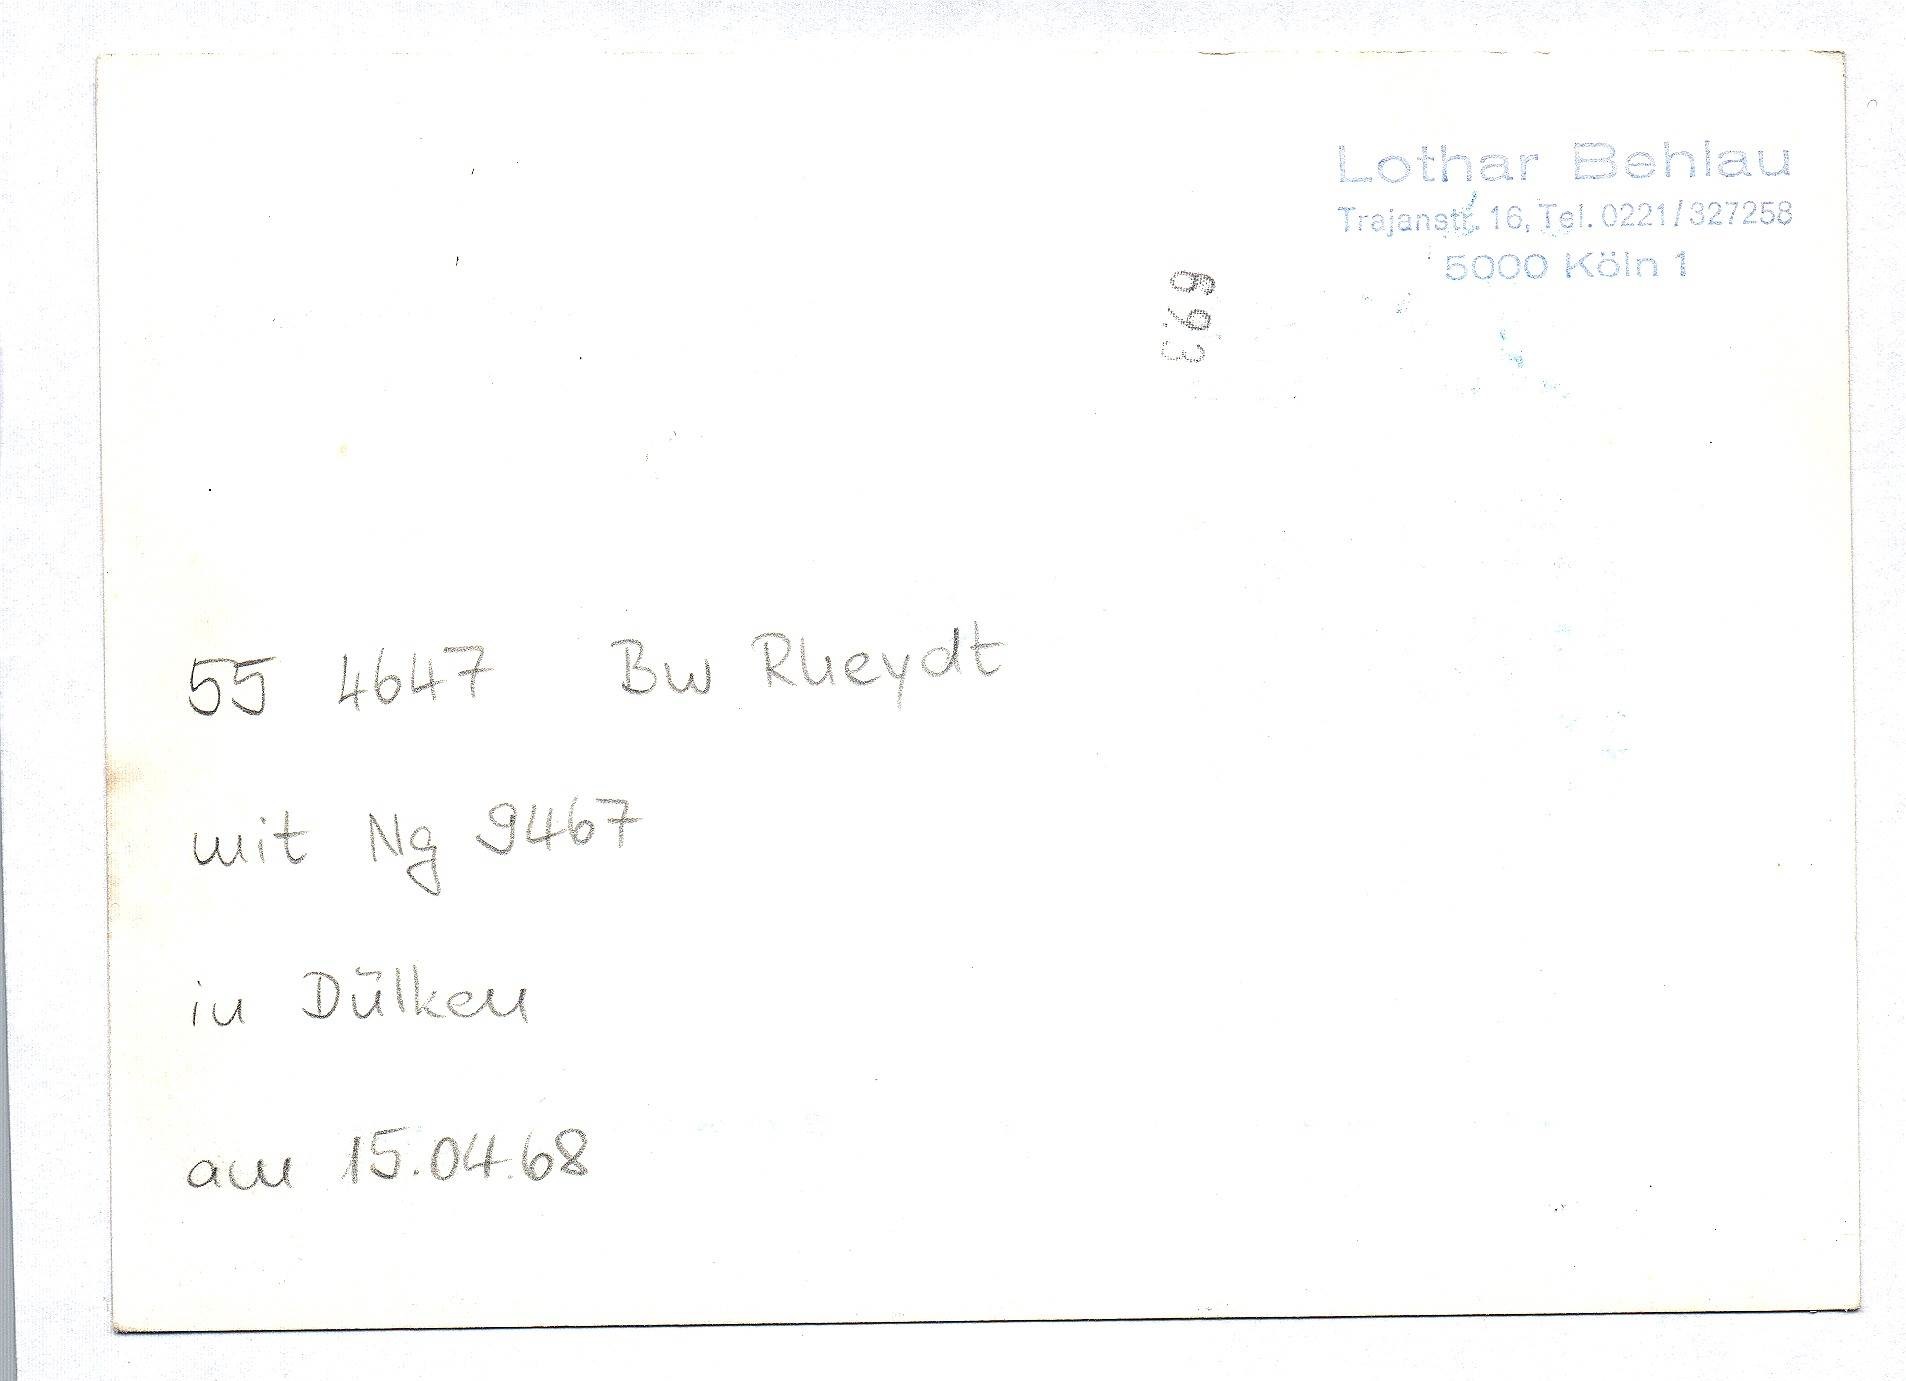 Lothar Behlau
Trajanstr. 16, Tel. 0221/327258
5000 Köln 1
69.3
55 4647 Bw Rheydt
mit Ng 9467
in Dülken
am 15.04.68